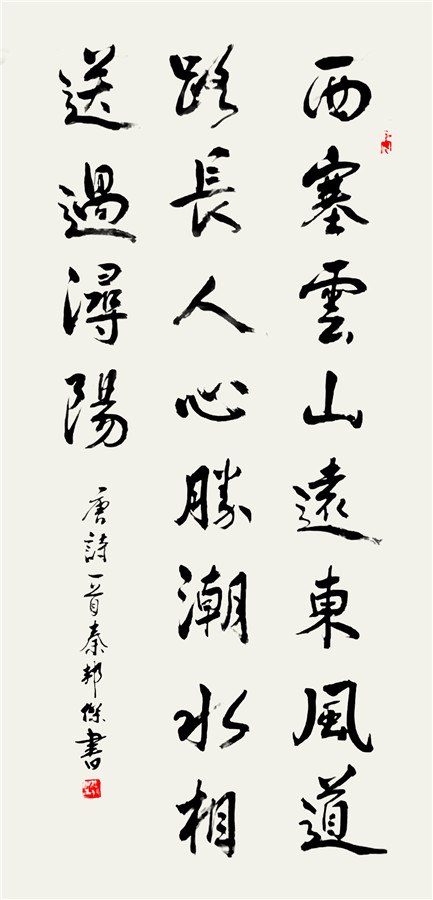 西塞雲山遠東風道
路長人心勝潮水相
送過潯陽
唐詩一首秦邦傑書